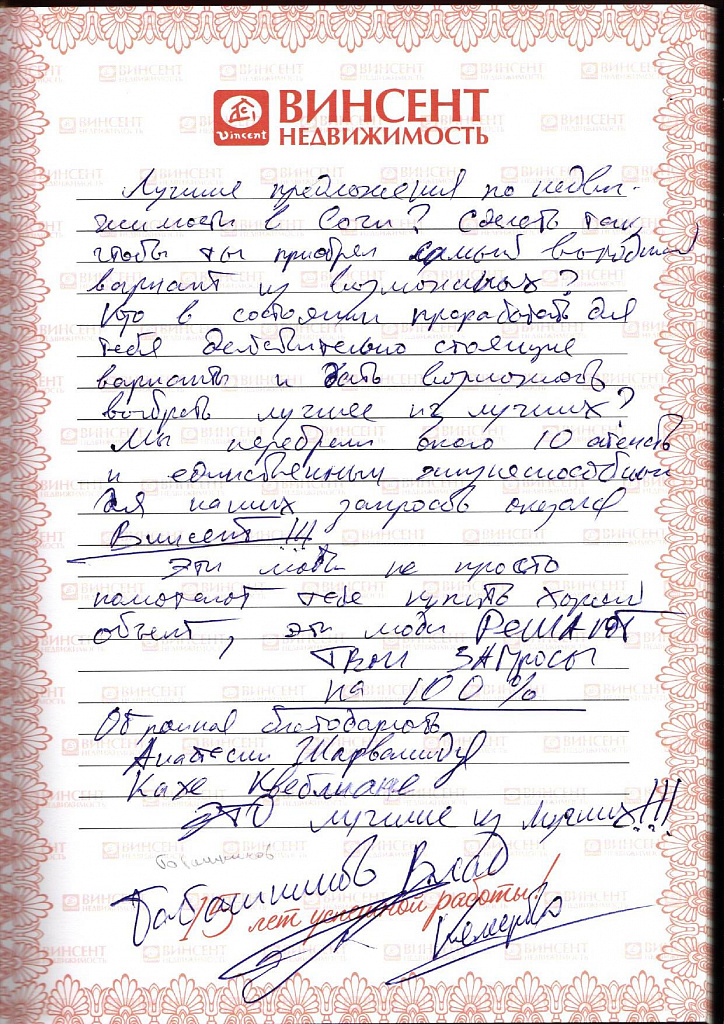 Vincent
ВИНСЕНТ
НЕДВИЖИМОСТЬ
Лучшие предложения по недви-
жимости в Сочи? Сделать так,
чтобы ты приобрел самый выгодный
вариант из возможных?
Кто в состоянии проработать для
тебя действительно стоящие
варианты и дать возможность
выбрать лучшее из лучших?
Мы перебрали около 10 агенств
и единственным жизнеспособным
для наших запросов оказался
Винсент!!!
Эти люди не просто
помогают тебе купить хороший
объект, эти люди РЕШАЮТ
ТВОИ ЗАПРОСЫ
НА 100 %
Огромная благодарность
Анастасии
Кахе
ЭТО лучшие из лучших!!!
Влад
15 лет успешной работы!
Кемерово